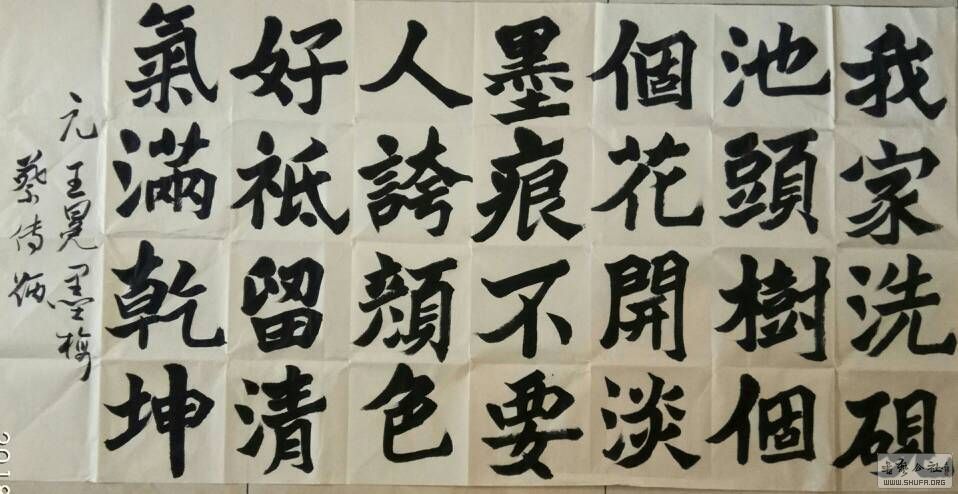 我家洗硯
池頭樹個
個花開淡
墨痕不要
人誇顏色
好祗留清
氣滿乾坤
元王冕墨梅
蔡傳
WWW.SHUFA.ORG